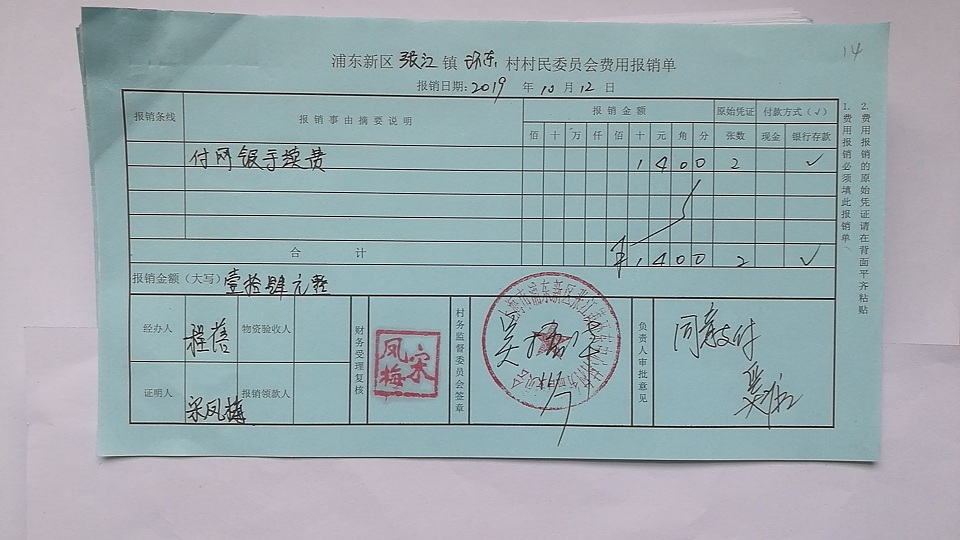 14
浦东新区 张江 镇 环东 村村民委员会费用报销单
报销日期: 2019 年 10 月 12 日
报销条线 报销事由摘要说明 报销金额 原始凭证 付款方式(√)
佰 十 万 仟 佰 十 元 角 分 张数 现金 银行存款
付网银手续费 1 4 0 0 2 √
合计 ¥ 1 4 0 0 2 √
报销金额(大写) 壹拾肆元整
经办人 程蓓 物资验收人
证明人 宋凤梅 报销领款人
财务受理复核
宋凤梅
村务监督委员会签章
负责人审批意见
同意支付
1.费用报销必须填此报销单、
2.费用报销的原始凭证请在背面平齐粘贴